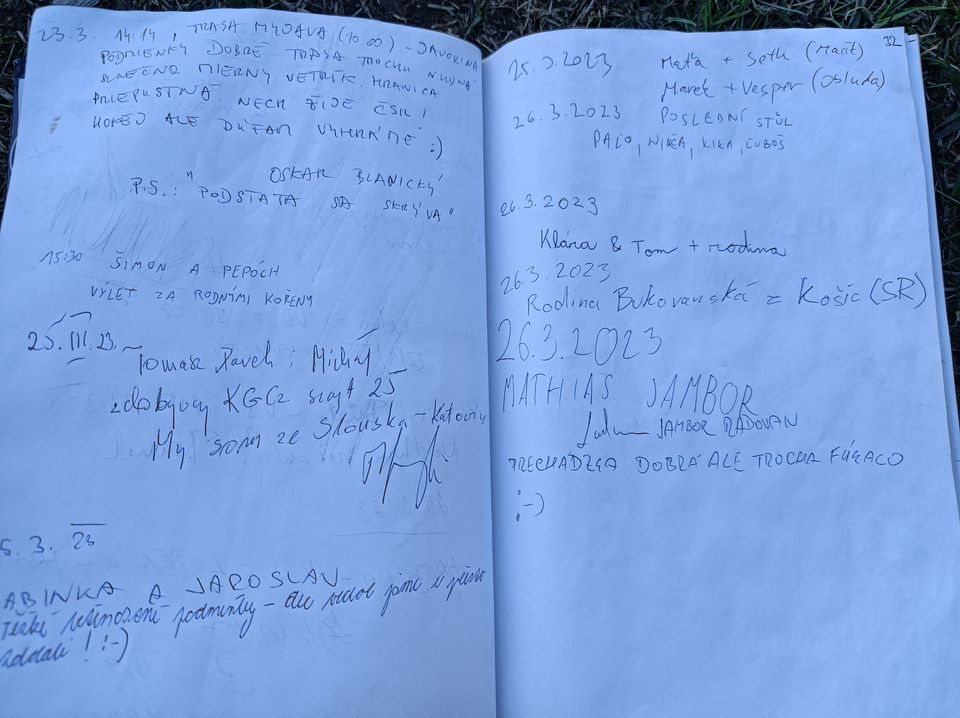 23.3. 14:14, TRASA MYJAVA (10:00) - JAVORINA
PODMIENKY DOBRÉ. TRASA TROCHU NUDNÁ.
SLNEČNO MIERNY VETRÍK. HRANICA
PRIEPUSTNÁ. NECH ŽIJE ČSR!
HOKEJ ALE DÚFAM VYHRÁME :)
OSKAR BLANICKÝ
P.S.: "PODSTATA SA SKRÝVA"
15:30 ŠIMON A PEPÓCH
VÝLET ZA RODNÝMI KOŘENY
25.III.23.
Tomasz, Pavel i Michał
zdobywcy KGCz szczyt 25
My som ze Slouska - Katovic
5.3. 23
ABINKA A JAROSLAV
Těžké podmínky - ale jsme
zdolali! :-)
32
25.3.2023 Maťa + Seth (Mačit)
Marek + Vesper (Obluda)
26.3.2023 POSLEDNÍ STŮL
PALO, NIKA, KIKA, ĽUBOŠ
26.3.2023
Klára & Tom + rodina
26.3.2023
Rodina Bukovanská z Košíc (SR)
26.3.2023
MATHIAS JAMBOR
JAMBOR RADOVAN
PRECHÁDZGA DOBRÁ ALE TROCHA FÚGACO
;-)